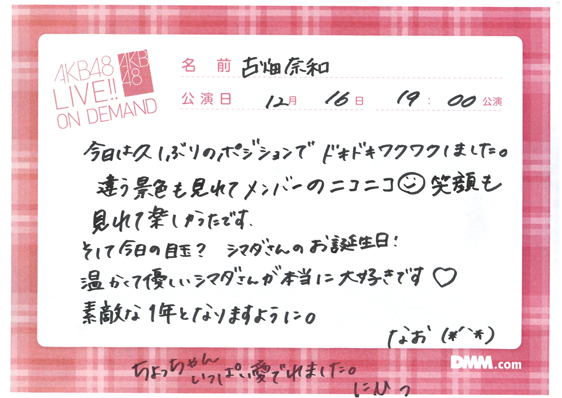 AKB48
LIVE!!
ON DEMAND
AKB
48
名前 古畑奈和
公演日 12月 16日 19:00公演
今日は久しぶりのポジションで ドキドキワクワクしました。
違う景色も見れてメンバーのニコニコ笑顔も
見れて楽しかったです.
そして今日の目玉? シマダさんのお誕生日!
温かくて優しいシマダさんが本当に大好きです♡
素敵な1年となりますように。
なお (*´`*)
DMM.com
ちょっちゃん
いっぱい愛でれました。
にひっ